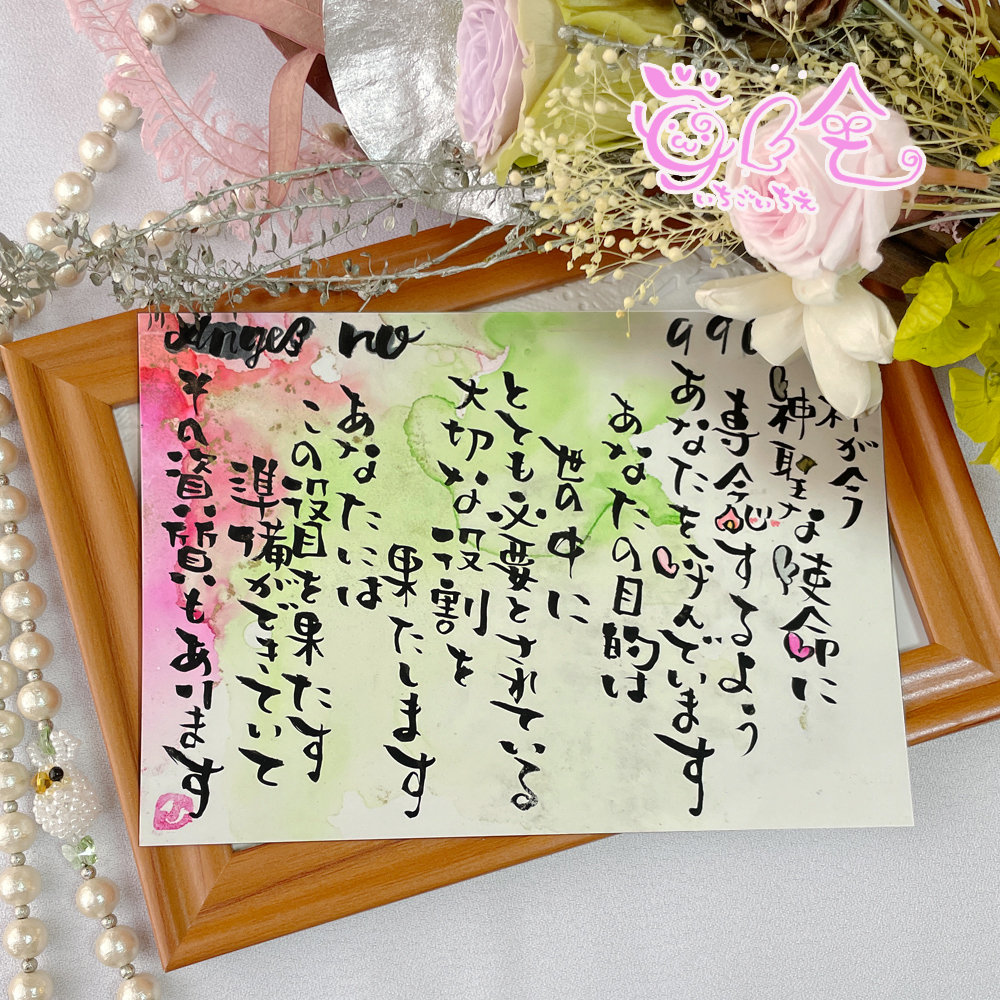 いちごいちえ
Angel no
神が今
神聖な使命に
専念するよう
あなたを呼んでいます
あなたの目的は
世の中に
とても必要とされている
大切な役割を
果たします
あなたには
この役目を果たす
準備ができていて
その資質もあります